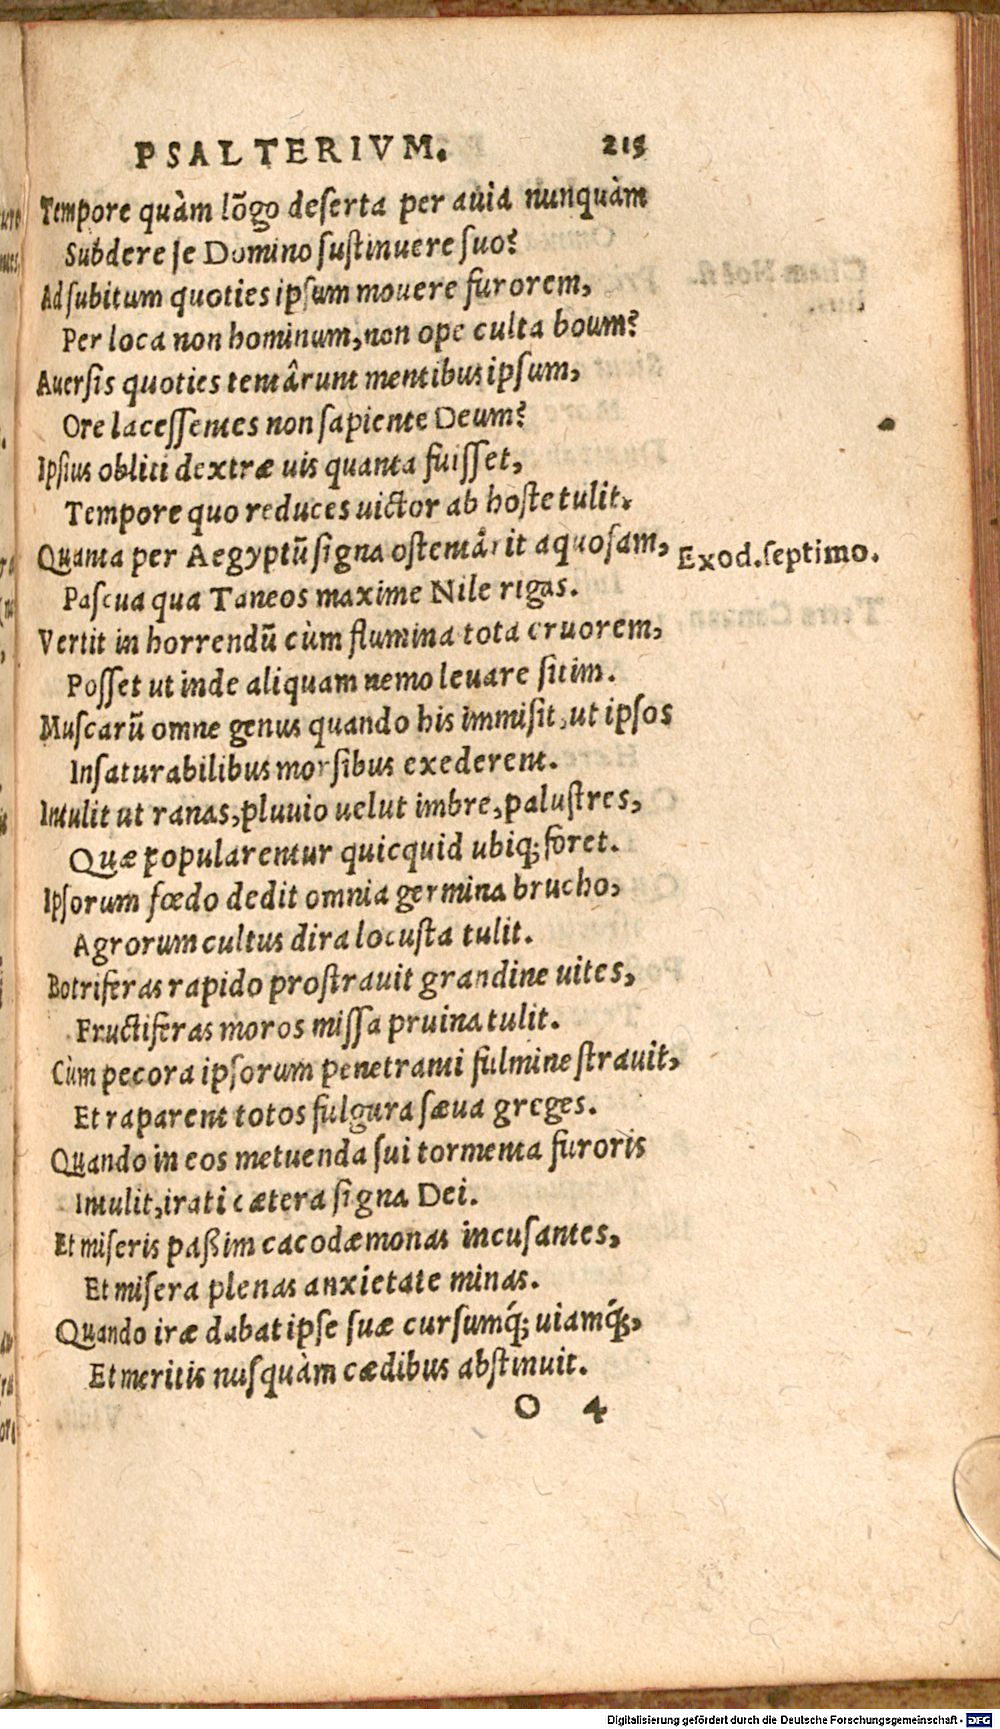 PSALTERIVM. 215
Tempore quàm lõgo deserta per auia nunquàm
Subdere se Domino sustinuere suo?
Ad subitum quoties ipsum mouere furorem,
Per loca non hominum, non ope culta boum?
Auersis quoties tentârunt mentibus ipsum,
Ore lacessentes non sapiente Deum?
Ipsius obliti dextræ uis quanta fuisset,
Tempore quo reduces uictor ab hoste tulit.
Quanta per Aegyptũ signa ostentârit aquosam, Exod. septimo.
Pascua qua Taneos maxime Nile rigas.
Vertit in horrendũ cùm flumina tota cruorem,
Posset ut inde aliquam nemo leuare sitim.
Muscarũ omne genus quando his immisit, ut ipsos
Insaturabilibus morsibus exederent.
Intulit ut ranas, pluuio uelut imbre, palustres,
Quæ popularentur quicquid ubiq; foret.
Ipsorum fœdo dedit omnia germina brucho,
Agrorum cultus dira locusta tulit.
Botriferas rapido prostrauit grandine uites,
Fructiferas moros missa pruina tulit.
Cùm pecora ipsorum penetranti fulmine strauit,
Et raparent totos fulgura sæua greges.
Quando in eos metuenda sui tormenta furoris
Intulit, irati cætera signa Dei.
Et miseris paßim cacodæmonas incusantes,
Et misera plenas anxietate minas.
Quando iræ dabat ipse suæ cursumq́; uiamq́;,
Et meritis nusquàm cædibus abstinuit.
O 4
Digitalisierung gefördert durch die Deutsche Forschungsgemeinschaft - DFG